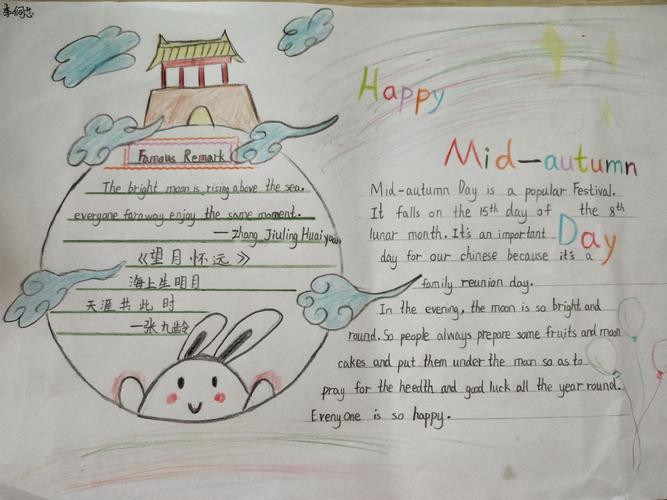 Happy
Mid-autumn
Day
Famous Remark
The bright moon is rising above the sea.
everyone faraway enjoy the same moment.
— Zhang Jiuling Huaiyuan
《望月怀远》
海上生明月
天涯共此时
—张九龄
Mid-autumn Day is a popular Festival.
It falls on the 15th day of the 8th
lunar month. It's an important
day for our chinese because it's a
family reunion day.
In the evening, the moon is so bright and
round. So people always prepare some fruits and moon
cakes and put them under the moon so as to
pray for the heedth and good luck all the year round.
Everyone is so happy.